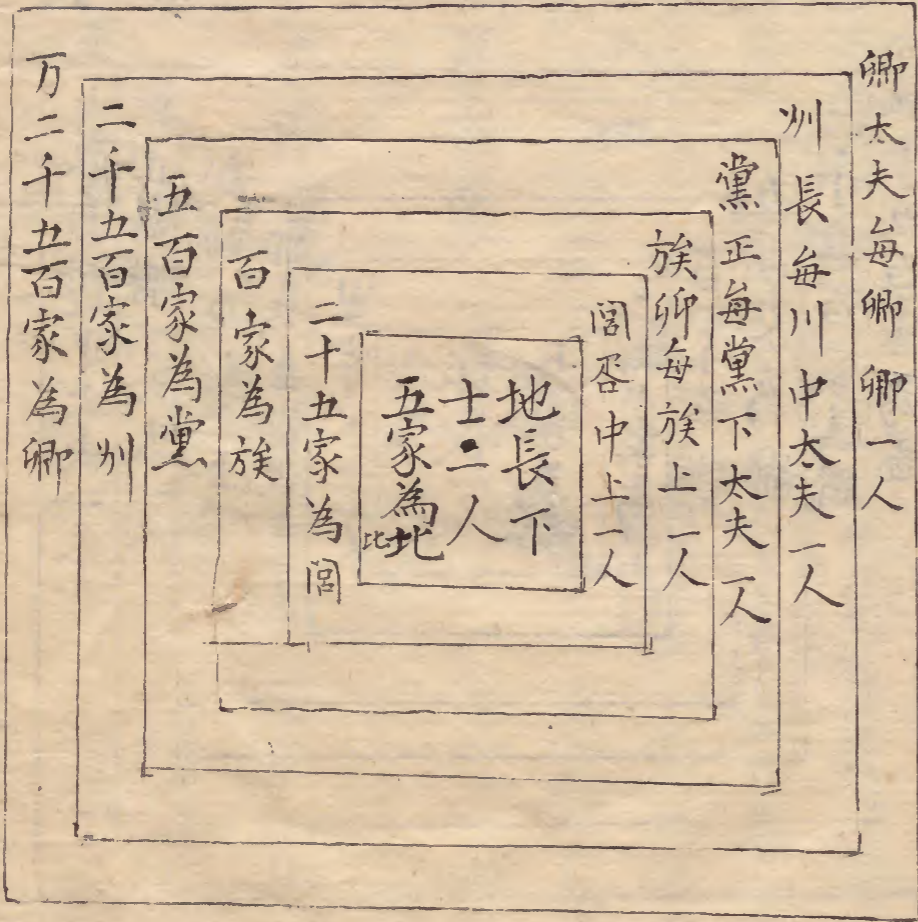 卿太夫每卿卿一人
州長每川中太夫一人
黨正每黨下太夫一人
族卿每族上一人
閭胥中上一人
地長下
士二人
五家為北
比
二十五家為閭
百家為族
五百家為黨
二千五百家為州
万二千五百家為卿